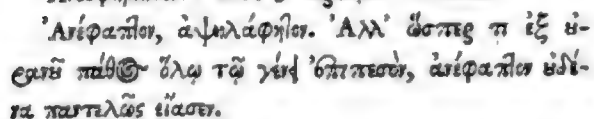 Ἀνέφαπτον, ἀψηλάφητον. Ἀλλ' ὥσπερ τι ἐξ οὐ-
ρανοῦ πάθος ὅλῳ τῷ γένει ἐπιπεσὸν, ἀνέφαπτον οὐδέ-
να παντελῶς εἴασεν.